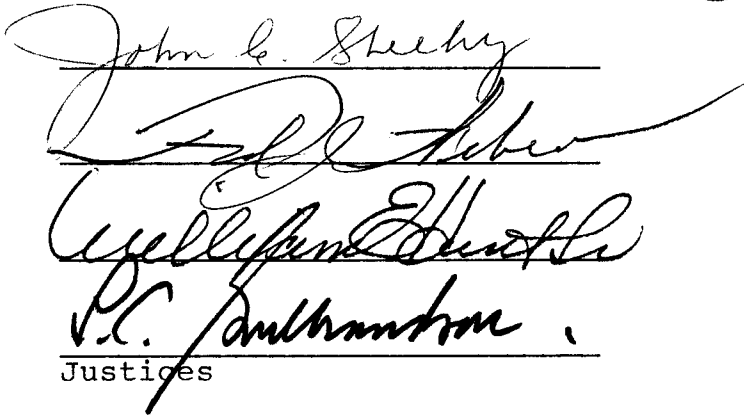 John C. Sheehy
Fred J. Weber
William E. Hunt Sr
L.C. Gulbrandson
Justices